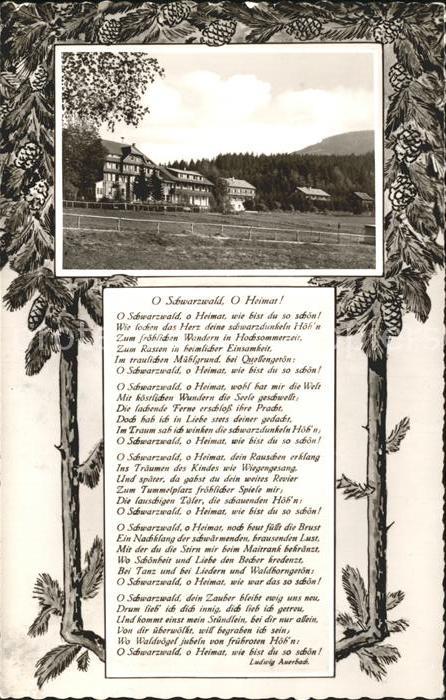 O Schwarzwald, O Heimat!
O Schwarzwald, o Heimat, wie bist du so schön!
Wie locken das Herz deine schwarzdunkeln Höh'n
Zum fröhlichen Wandern in Hochsommerzeit,
Zum Rasten in heimlicher Einsamkeit,
Im traulichen Mühlgrund, bei Quellengetön:
O Schwarzwald, o Heimat, wie bist du so schön!
O Schwarzwald, o Heimat, wohl hat mir die Welt
Mit köstlichen Wundern die Seele geschwellt;
Die lachende Ferne erschloß ihre Pracht,
Doch hab ich in Liebe stets deiner gedacht,
Im Traum sah ich winken die schwarzdunkeln Höh'n;
O Schwarzwald, o Heimat, wie bist du so schön!
O Schwarzwald, o Heimat, dein Rauschen erklang
Ins Träumen des Kindes wie Wiegengesang,
Und später, da gabst du dein weites Revier
Zum Tummelplatz fröhlicher Spiele mir;
Die lauschigen Täler, die schauenden Höh'n:
O Schwarzwald, o Heimat, wie bist du so schön!
O Schwarzwald, o Heimat, noch heut füllt die Brust
Ein Nachklang der schwärmenden, brausenden Lust,
Mit der du die Stirn mir beim Maitrank bekränzt,
Wo Schönheit und Liebe den Becher kredenzt,
Bei Tanz und bei Liedern und Waldhorngetön:
O Schwarzwald, o Heimat, wie war das so schön!
O Schwarzwald, dein Zauber bleibt ewig uns neu,
Drum lieb' ich dich innig, dich lieb ich getreu,
Und kommt einst mein Stündlein, bei dir nur allein,
Von dir überwölkt, will begraben ich sein;
Wo Waldvögel jubeln von frühroten Höh'n:
O Schwarzwald, o Heimat, wie bist du so schön!
Ludwig Auerbach.